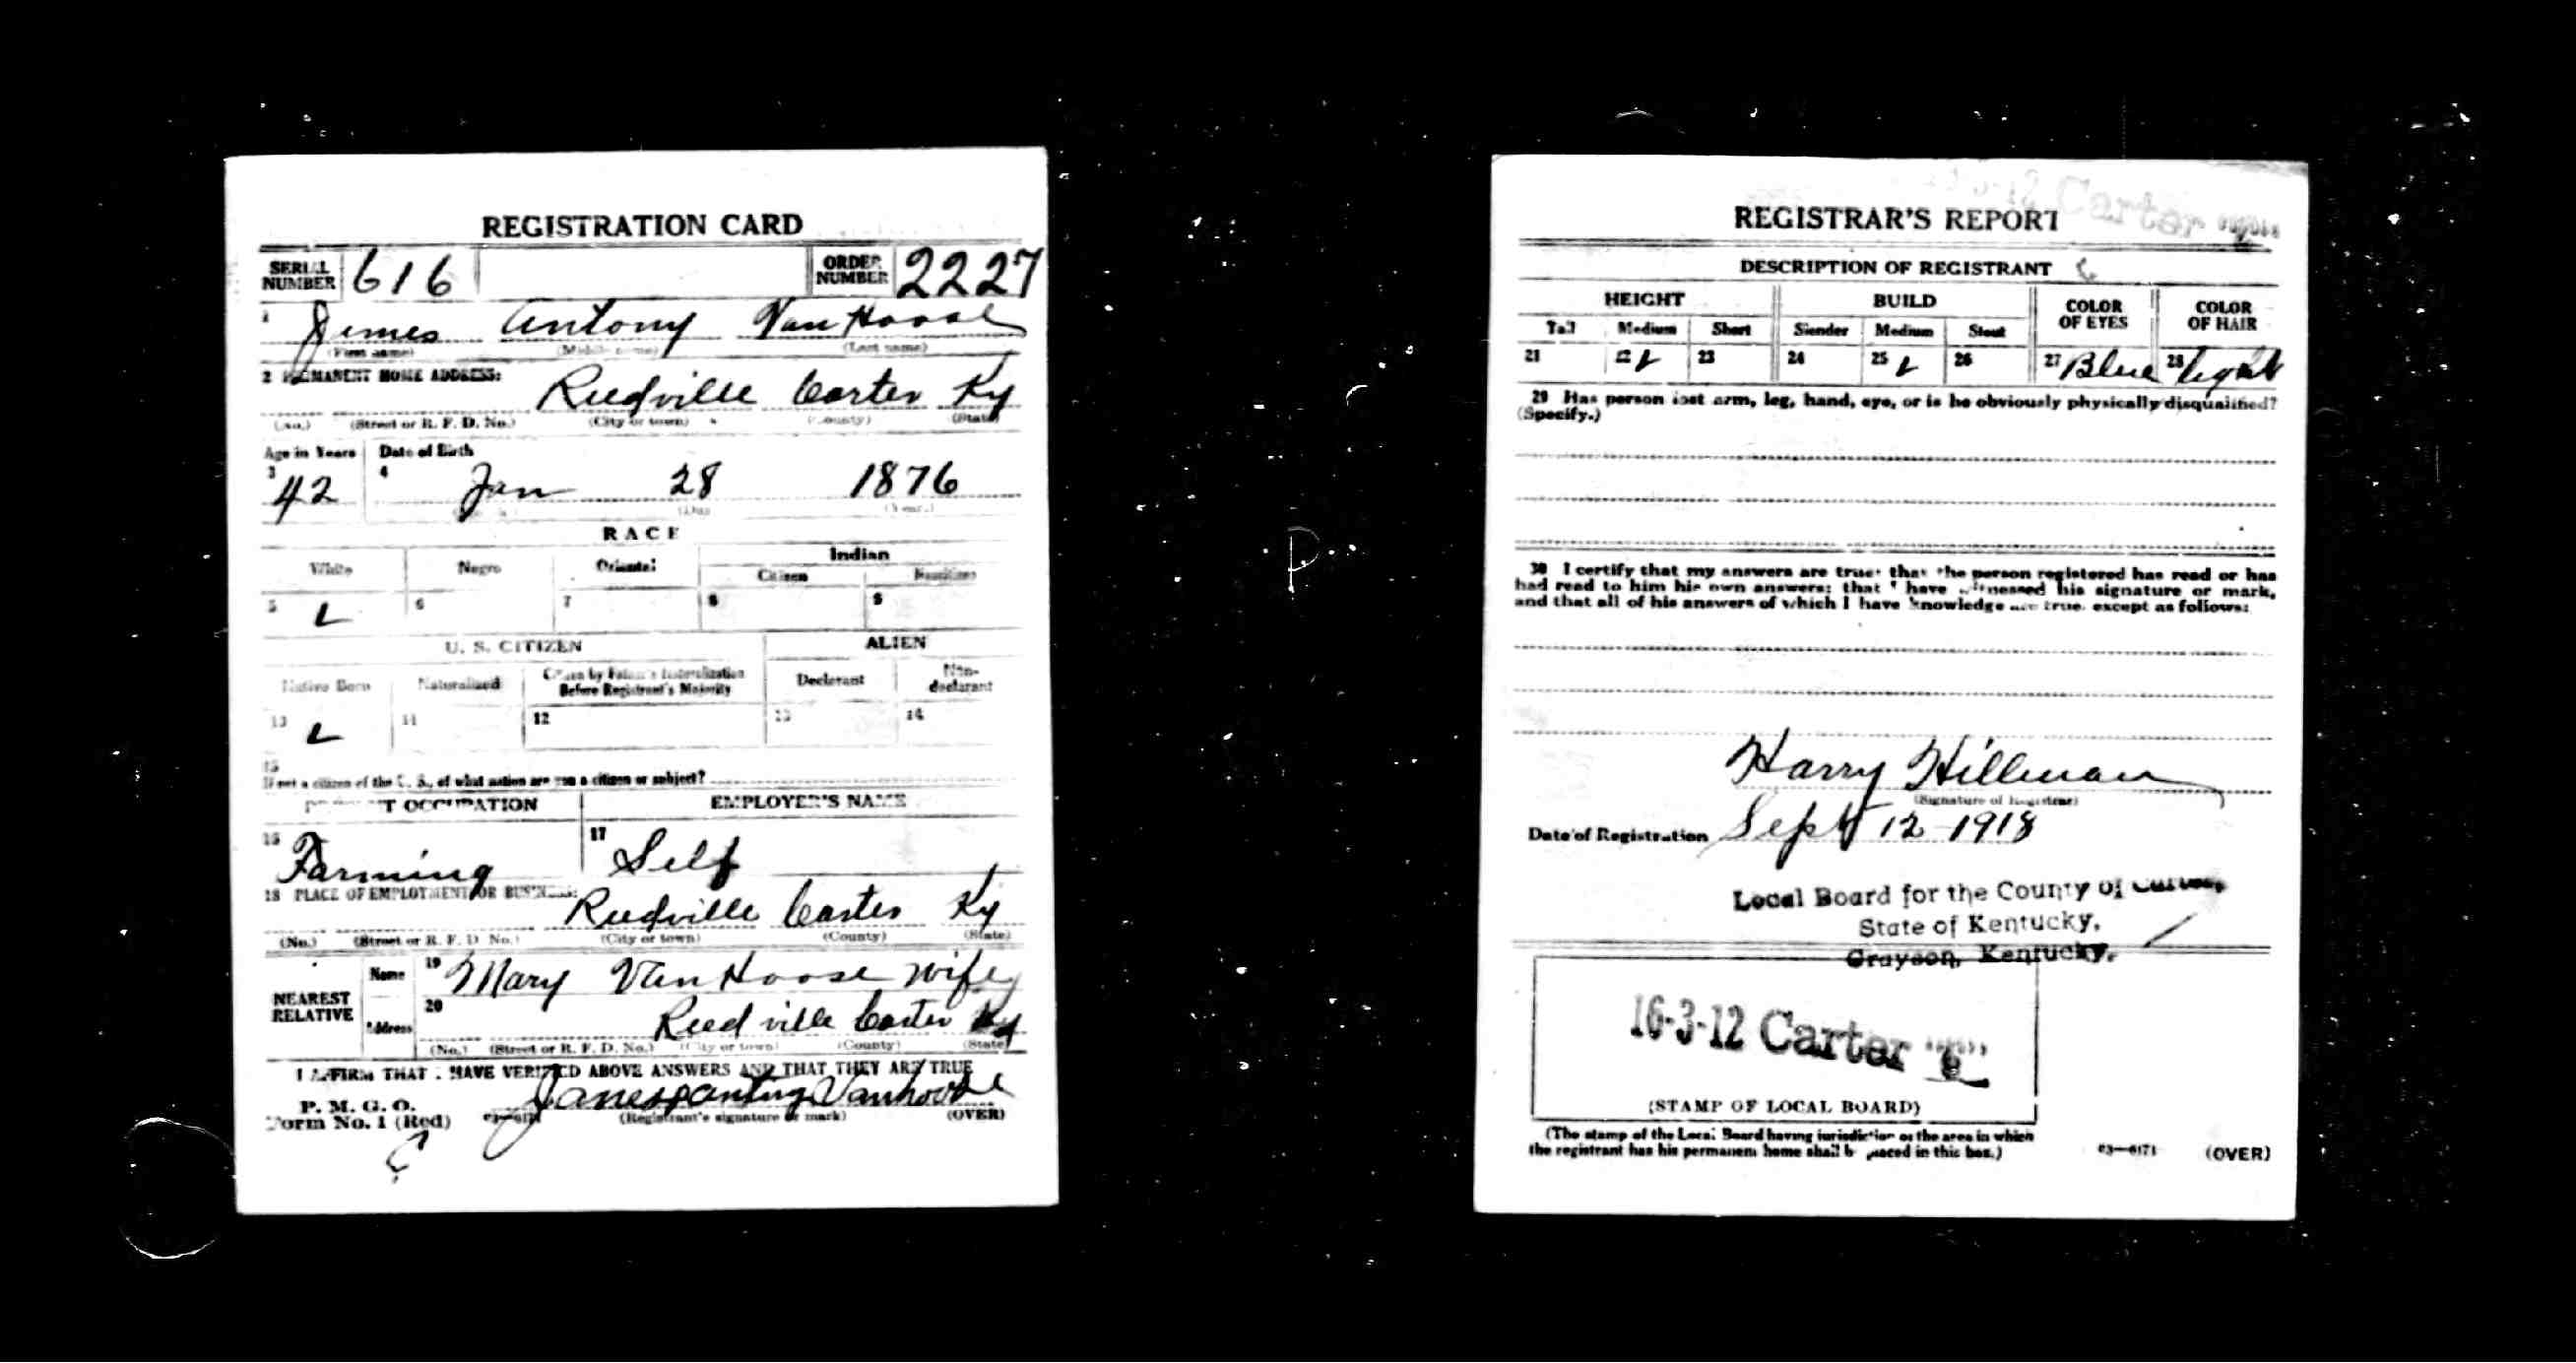 REGISTRATION CARD
SERIAL NUMBER 616 ORDER NUMBER 2227
1 James Antony Van Hoose
(First name) (Middle name) (Last name)
2 PERMANENT HOME ADDRESS:
Reedville Carter Ky
(No.) (Street or R. F. D. No.) (City or town) (County) (State)
Age in Years Date of Birth
3 42 4 Jan 28 1876
(Day) (Year.)
RACE
White Negro Oriental Indian
Citizen Noncitizen
5 6 7 8 9
U. S. CITIZEN ALIEN
Native Born Naturalized Citizen by Father's Naturalization Before Registrant's Majority Declarant Non-declarant
10 11 12 13 14
15
If not a citizen of the U. S., of what nation are you a citizen or subject?
PRESENT OCCUPATION EMPLOYER'S NAME
16 Farming 17 Self
18 PLACE OF EMPLOYMENT OR BUSINESS:
Reedville Carter Ky
(No.) (Street or R. F. D. No.) (City or town) (County) (State)
NEAREST RELATIVE Name 19 Mary Van Hoose wife
Address 20 Reedville Carter Ky
(No.) (Street or R. F. D. No.) (City or town) (County) (State)
I AFFIRM THAT I HAVE VERIFIED ABOVE ANSWERS AND THAT THEY ARE TRUE
P. M. G. O.
Form No. 1 (Red) Vanhoose
(Registrant's signature or mark) (OVER)
Carter
REGISTRAR'S REPORT
DESCRIPTION OF REGISTRANT
HEIGHT BUILD COLOR OF EYES COLOR OF HAIR
Tall Medium Short Slender Medium Stout
21 22 23 24 25 26 27 Blue 28 light
29 Has person lost arm, leg, hand, eye, or is he obviously physically disqualified?
(Specify.)
30 I certify that my answers are true; that the person registered has read or has
had read to him his own answers; that I have witnessed his signature or mark,
and that all of his answers of which I have knowledge are true, except as follows:
Harry Hillman
(Signature of Registrar)
Date of Registration Sept 12 1918
Local Board for the County of Carter,
State of Kentucky,
Grayson, Kentucky.
16-3-12 Carter
(STAMP OF LOCAL BOARD)
(The stamp of the Local Board having jurisdiction of the area in which
the registrant has his permanent home shall be placed in this box.)
63—6171 (OVER)